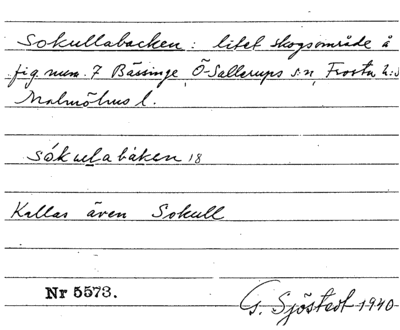 Sokullabacken: litet skogsområde å
fig. num. 7 Bässinge, Ö-Sallerups sn, Frosta h:d
Malmöhus l.
sókulabàken 18
Kallas även Sokull
Nr 5573.
G. Sjöstedt 1940